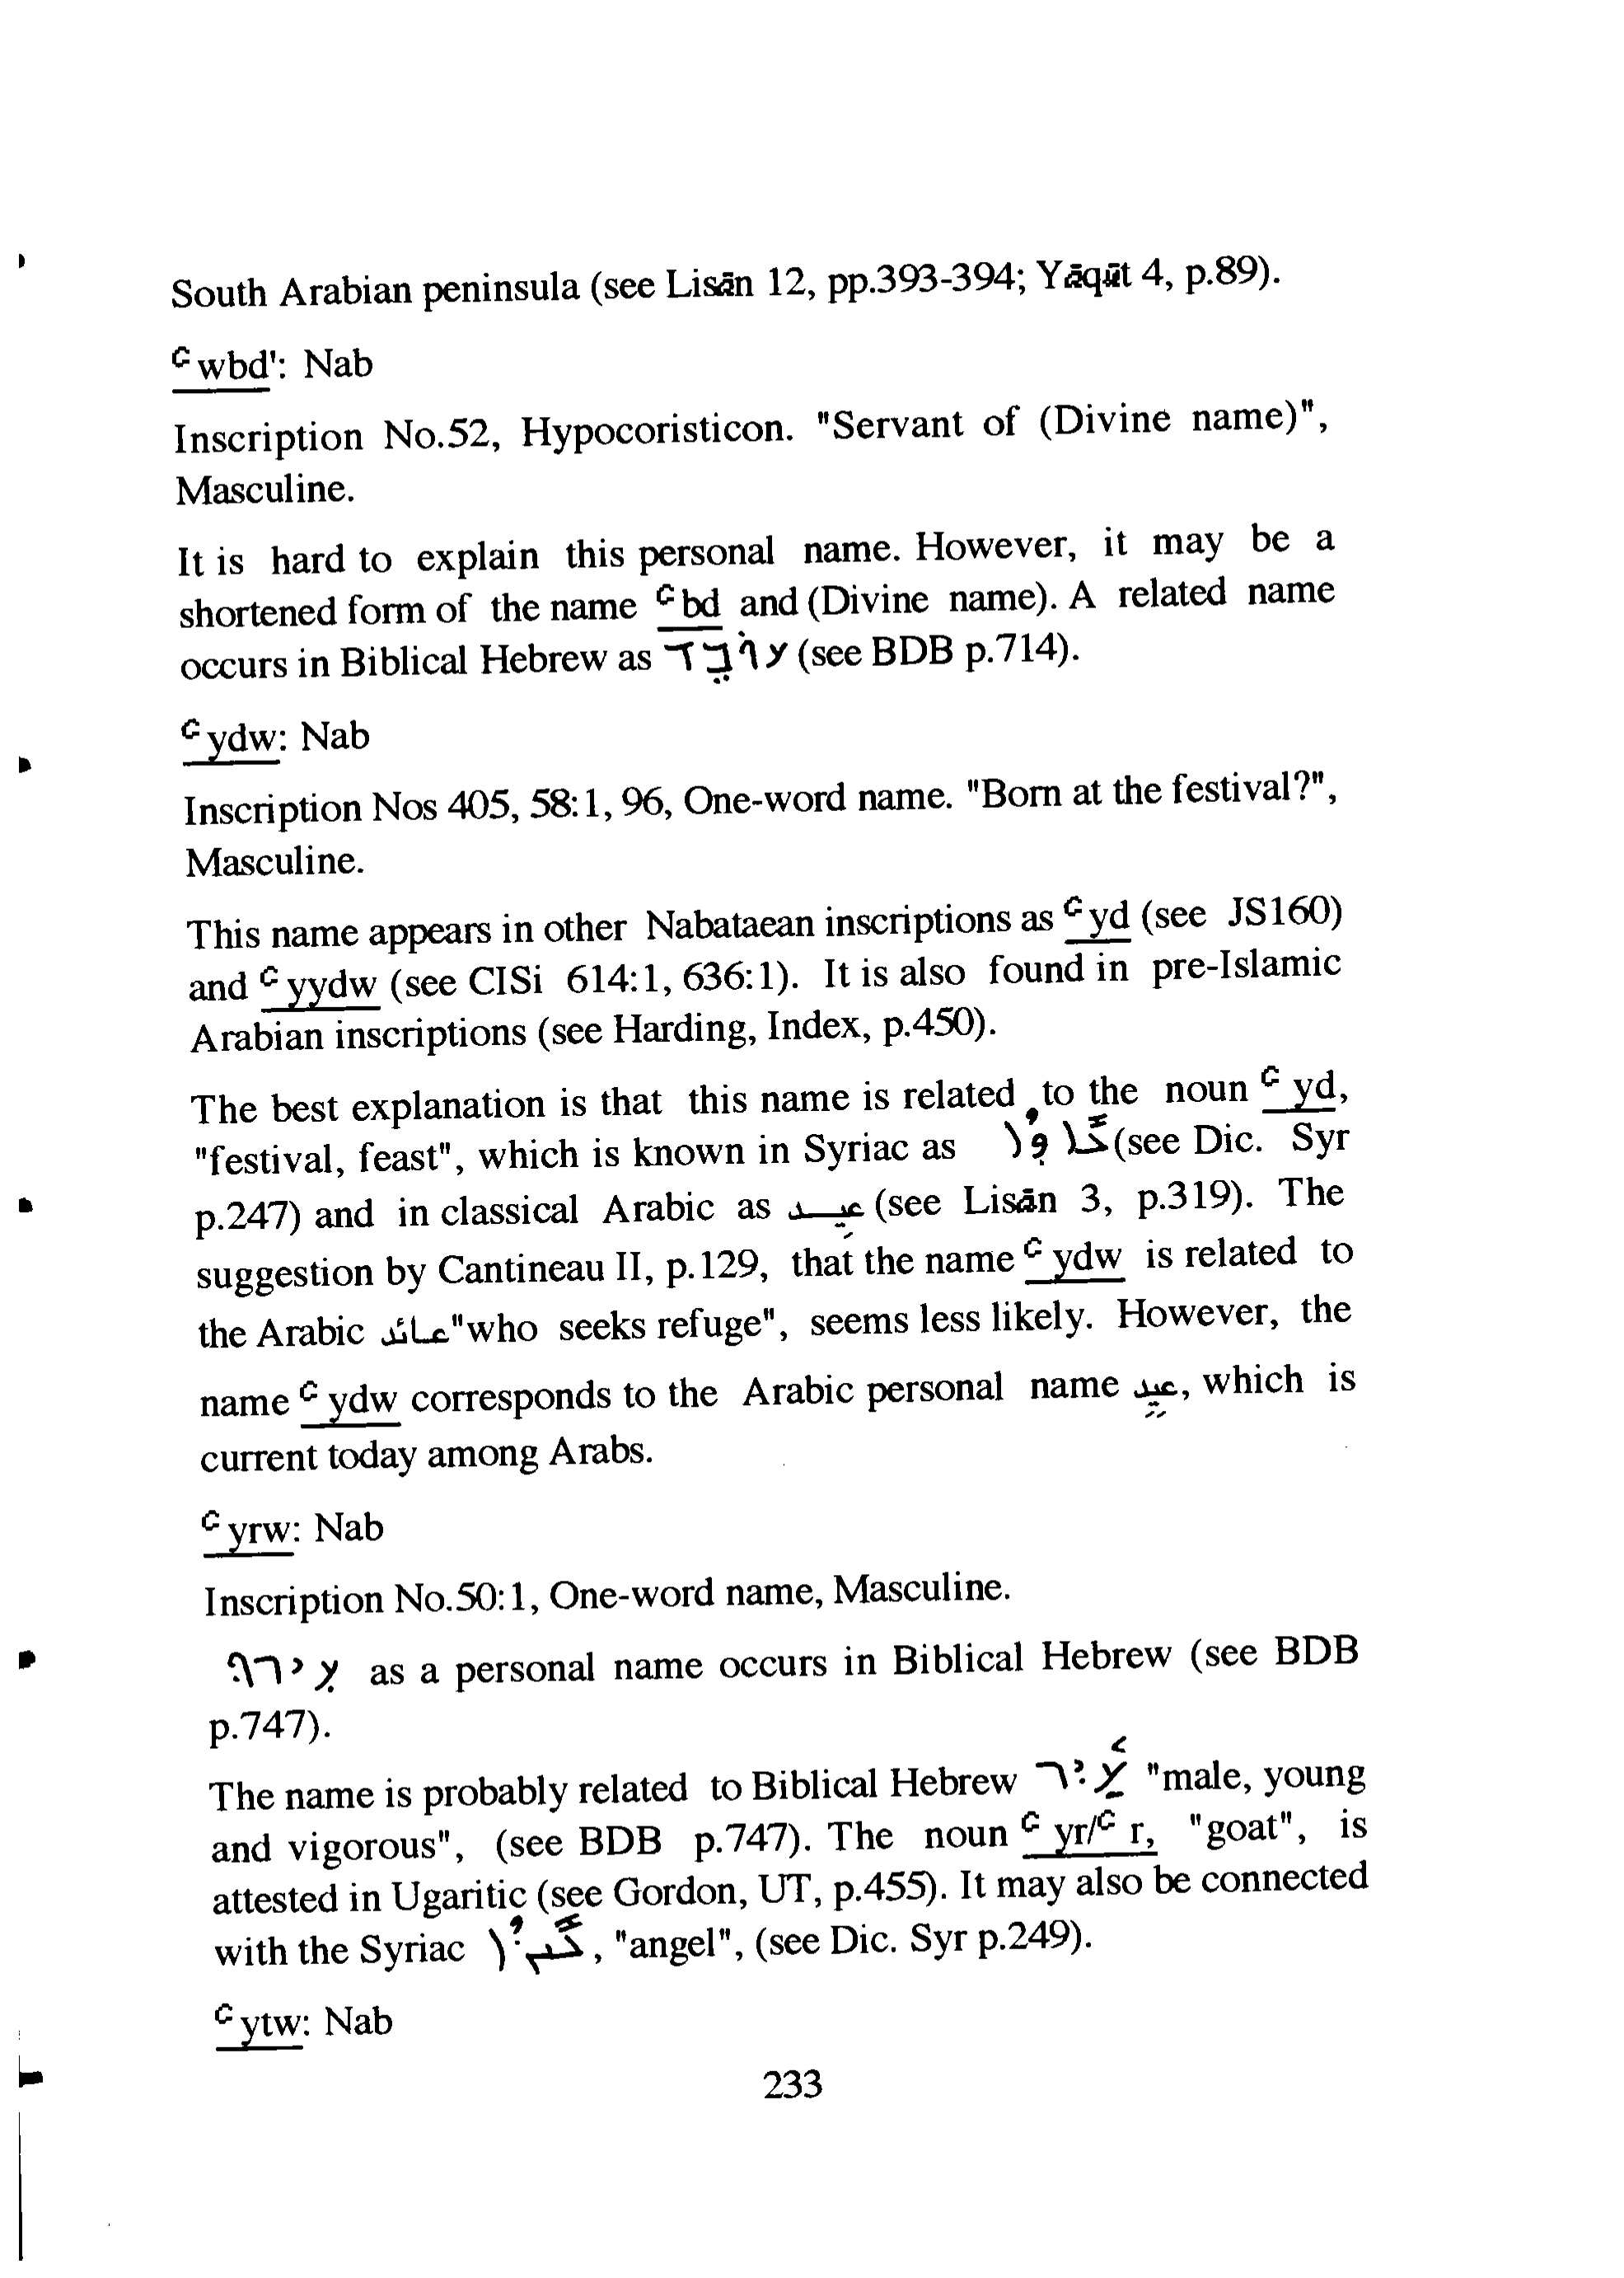 South Arabian peninsula (see Lisān 12, pp.393-394; Yāqūt 4, p.89).
ᶜwbd': Nab
Inscription No.52, Hypocoristicon. "Servant of (Divine name)",
Masculine.
It is hard to explain this personal name. However, it may be a
shortened form of the name ᶜbd and (Divine name). A related name
occurs in Biblical Hebrew as עוֹבֵד (see BDB p.714).
ᶜydw: Nab
Inscription Nos 405, 58:1, 96, One-word name. "Born at the festival?",
Masculine.
This name appears in other Nabataean inscriptions as ᶜyd (see JS160)
and ᶜyydw (see CISi 614:1, 636:1). It is also found in pre-Islamic
Arabian inscriptions (see Harding, Index, p.450).
The best explanation is that this name is related to the noun ᶜyd,
"festival, feast", which is known in Syriac as (see Dic. Syr
p.247) and in classical Arabic as عِيـد (see Lisān 3, p.319). The
suggestion by Cantineau II, p.129, that the name ᶜydw is related to
the Arabic عائذ "who seeks refuge", seems less likely. However, the
name ᶜydw corresponds to the Arabic personal name عيد, which is
current today among Arabs.
ᶜyrw: Nab
Inscription No.50:1, One-word name, Masculine.
עִירוּ as a personal name occurs in Biblical Hebrew (see BDB
p.747).
The name is probably related to Biblical Hebrew עַיִר "male, young
and vigorous", (see BDB p.747). The noun ᶜyr/ᶜr, "goat", is
attested in Ugaritic (see Gordon, UT, p.455). It may also be connected
with the Syriac , "angel", (see Dic. Syr p.249).
ᶜytw: Nab
233